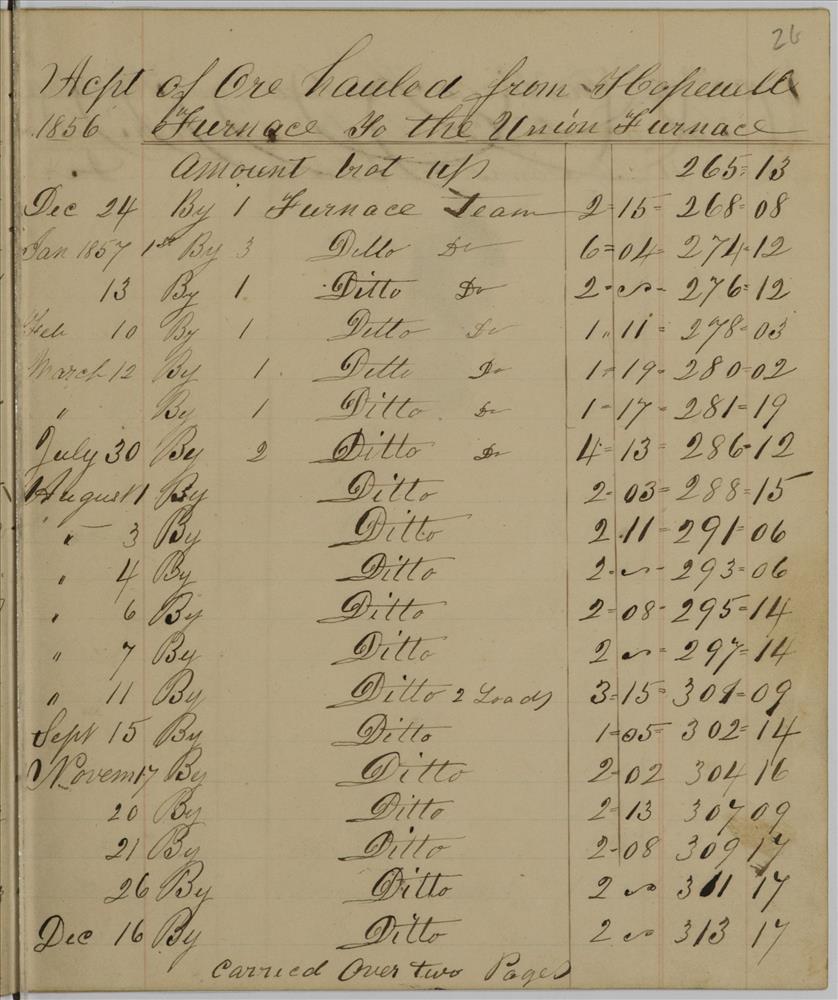 26
Acpt of Ore hauled from Hopewell
1856 Furnace To the Union Furnace
Amount brot up 265=13
Dec 24 By 1 Furnace Team 2=15=268=08
Jan 1857 1st By 3 Ditto Do 6=04=274=12
13 By 1 Ditto Do 2=~=276=12
Feb 10 By 1 Ditto Do 1=11=278=03
March 12 By 1 Ditto Do 1=19=280=02
" By 1 Ditto Do 1=17=281=19
July 30 By 2 Ditto Do 4=13=286=12
August 1 By Ditto 2=03=288=15
" 3 By Ditto 2.11=291=06
" 4 By Ditto 2=~=293=06
" 6 By Ditto 2=08=295=14
" 7 By Ditto 2 ~=297=14
" 11 By Ditto 2 Loads 3=15=301=09
Sept 15 By Ditto 1=05=302=14
Novem 17 By Ditto 2=02 304 16
20 By Ditto 2=13 307 09
21 By Ditto 2=08 309 17
26 By Ditto 2 ~ 311 17
Dec 16 By Ditto 2 ~ 313 17
Carried Over two Pages